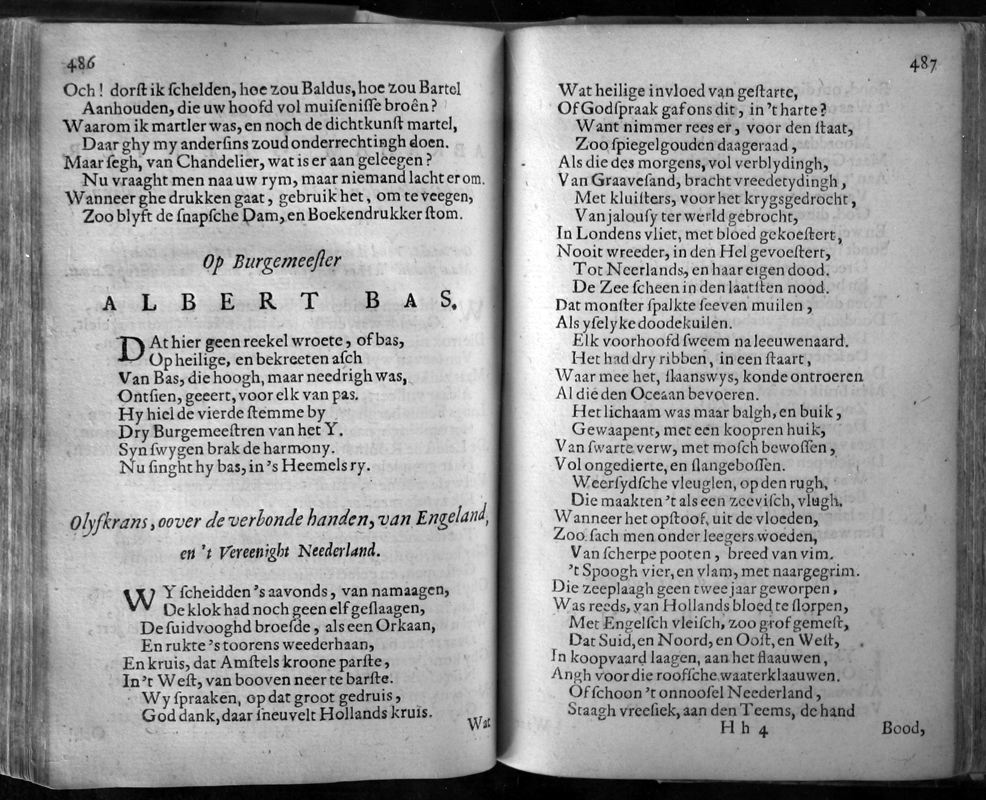 486
Och! dorſt ik ſchelden, hoe zou Baldus, hoe zou Bartel
Aanhouden, die uw hoofd vol muiſeniſſe broên?
Waarom ik martler was, en noch de dichtkunſt martel,
Daar ghy my anderſins zoud onderrechtingh doen.
Maar ſegh, van Chandelier, wat is er aan geleegen?
Nu vraaght men naa uw rym, maar niemand lacht er om.
Wanneer ghe drukken gaat, gebruik het, om te veegen,
Zoo blyft de ſnapſche Dam, en Boekendrukker ſtom.
Op Burgemeeſter
ALBERT BAS.
DAt hier geen reekel wroete, of bas,
Op heilige, en bekreeten aſch
Van Bas, die hoogh, maar needrigh was,
Ontſien, geeert, voor elk van pas.
Hy hiel de vierde ſtemme by
Dry Burgemeeſtren van het Y.
Syn ſwygen brak de harmony.
Nu ſinght hy bas, in 's Heemels ry.
Olyfkrans, oover de verbonde handen, van Engeland,
en 't Vereenight Neederland.
WY ſcheidden 's aavonds, van namaagen,
De klok had noch geen elf geſlaagen,
De ſuidvooghd broeſde, als een Orkaan,
En rukte 's toorens weederhaan,
En kruis, dat Amſtels kroone parſte,
In 't Weſt, van booven neer te barſte.
Wy ſpraaken, op dat groot gedruis,
God dank, daar ſneuvelt Hollands kruis.
Wat
487
Wat heilige invloed van geſtarte,
Of Godſpraak gaf ons dit, in 't harte?
Want nimmer rees er, voor den ſtaat,
Zoo ſpiegelgouden daageraad,
Als die des morgens, vol verblydingh,
Van Graaveſand, bracht vreedetydingh,
Met kluiſters, voor het krygsgedrocht,
Van jalouſy ter werld gebrocht,
In Londens vliet, met bloed gekoeſtert,
Nooit wreeder, in den Hel gevoeſtert,
Tot Neerlands, en haar eigen dood.
De Zee ſcheen in den laatſten nood.
Dat monſter ſpalkte ſeeven muilen,
Als yſelyke doodekuilen.
Elk voorhoofd ſweem na leeuwenaard.
Het had dry ribben, in een ſtaart,
Waar mee het, ſlaanswys, konde ontroeren
Al die den Oceaan bevoeren.
Het lichaam was maar balgh, en buik,
Gewaapent, met een koopren huik,
Van ſwarte verw, met moſch bewoſſen,
Vol ongedierte, en ſlangeboſſen.
Weerſydſche vleuglen, op den rugh,
Die maakten 't als een zeeviſch, vlugh.
Wanneer het opſtoof, uit de vloeden,
Zoo ſach men onder leegers woeden,
Van ſcherpe pooten, breed van vim.
't Spoogh vier, en vlam, met naargegrim.
Die zeeplaagh geen twee jaar geworpen,
Was reeds, van Hollands bloed te ſlorpen,
Met Engelſch vleiſch, zoo grof gemeſt,
Dat Suid, en Noord, en Ooſt, en Weſt,
In koopvaard laagen, aan het flaauwen,
Angh voor die roofſche waaterklaauwen.
Of ſchoon 't onnooſel Neederland,
Staagh vreeſiek, aan den Teems, de hand
H h 4
Bood,